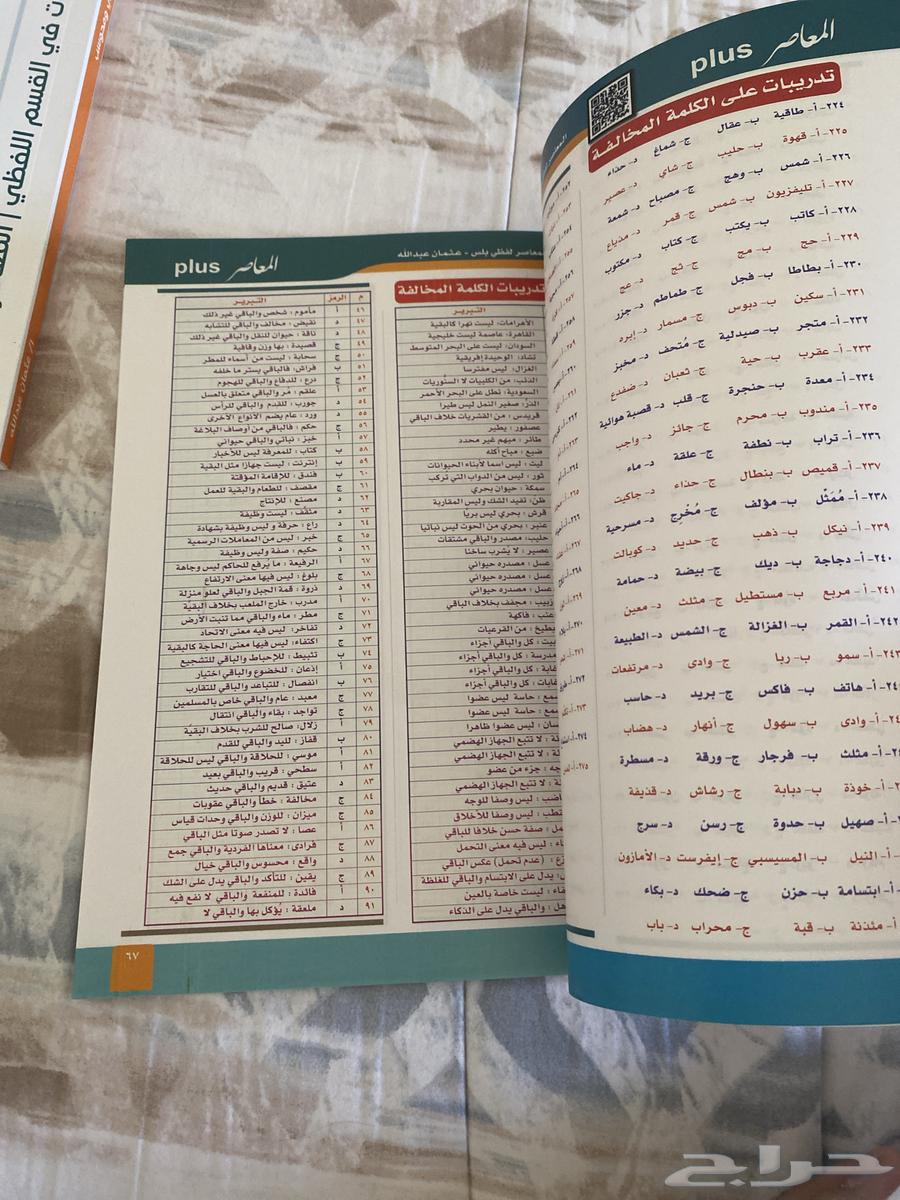 المعاصر plus
تدريبات على الكلمة المخالفة
٢٢٤- أ- طاقية ب- عقال ج- شماغ د- حذاء
٢٢٥- أ- قهوة ب- حليب ج- شاي د- عصير
٢٢٦- أ- شمس ب- وهج ج- مصباح د- شمعة
٢٢٧- أ- تليفزيون ب- شمس ج- قمر د- مذياع
٢٢٨- أ- كاتب ب- يكتب ج- كتاب د- مكتوب
٢٢٩- أ- حج ب- مج ج- ثج د- عج
٢٣٠- أ- بطاطا ب- فجل ج- طماطم د- جزر
٢٣١- أ- سكين ب- دبوس ج- مسمار د- إبره
٢٣٢- أ- متجر ب- صيدلية ج- مُتحف د- مخبز
٢٣٣- أ- عقرب ب- حية ج- ثعبان د- ضفدع
٢٣٤- أ- معدة ب- حنجرة ج- قلب د- قصبة هوائية
٢٣٥- أ- مندوب ب- محرم ج- جائز د- واجب
٢٣٦- أ- تراب ب- نطفة ج- علقة د- ماء
٢٣٧- أ- قميص ب- بنطال ج- حذاء د- جاكيت
٢٣٨- أ- مُمَثّل ب- مؤلف ج- مُخْرِج د- مسرحية
٢٣٩- أ- نيكل ب- ذهب ج- حديد د- كوبالت
٢٤٠- أ- دجاجة ب- ديك ج- بيضة د- حمامة
٢٤١- أ- مربع ب- مستطيل ج- مثلث د- معين
٢٤٢- أ- القمر ب- الغزالة ج- الشمس د- الطبيعة
٢٤٣- أ- سمو ب- ربا ج- وادى د- مرتفعات
أ- هاتف ب- فاكس ج- بريد د- حاسب
أ- وادى ب- سهول ج- أنهار د- هضاب
أ- مثلث ب- فرجار ج- ورقة د- مسطرة
أ- خوذة ب- دبابة ج- رشاش د- قذيفة
أ- صهيل ب- حدوة ج- رسن د- سرج
أ- النيل ب- المسيسيبي ج- إيفرست د- الأمازون
أ- ابتسامة ب- حزن ج- ضحك د- بكاء
أ- مئذنة ب- قبة ج- محراب د- باب
المعاصر لفظي بلس - عثمان عبدالله
المعاصر plus
تدريبات الكلمة المخالفة
التبرير
الأهرامات: ليست نهرا كالبقية
القاهرة: عاصمة ليست خليجية
السودان: ليست على البحر المتوسط
تشاد: الوحيدة إفريقية
الغزال: ليس مفترسا
الذئب: من الكلبيات لا السنُوريات
السعودية: تطل على البحر الأحمر
الذَرّ: صغير النمل ليس طيرا
قريدس: من القشريات خلاف الباقي
عصفور: يطير
طائر: مبهم غير محدد
ضبع: مباح أكله
ليث: ليس اسما لأبناء الحيوانات
ثور: ليس من الدواب التي تركب
سمكة: حيوان بحري
ظن: تفيد الشك وليس المقاربة
قرش: بحري ليس بريا
عنبر: بحري من الحوت ليس نباتيا
حليب: مصدر والباقي مشتقات
عصير: لا يشرب ساخنا
عسل: مصدره حيواني
عسل: مصدره حيواني
عسل: مصدره حيواني
زبيب: مجفف بخلاف الباقي
عنب: فاكهة
بطيخ: من القرعيات
بيت: كل والباقي أجزاء
مدرسة: كل والباقي أجزاء
غابة: كل والباقي أجزاء
غابات: كل والباقي أجزاء
سمع: حاسة ليس عضوا
سمع: حاسة ليس عضوا
لسان: ليس عضوا ظاهرا
لا تتبع الجهاز الهضمي
لا تتبع الجهاز الهضمي
جزء من عضو
لا تتبع الجهاز الهضمي
ليس وصفا للوجه
ليس وصفا للأخلاق
صفة حسن خلافا للباقي
ليس فيه معنى التحمل
(عدم تحمل) عكس الباقي
يدل على الابتسام والباقي للغلظة
ليست خاصة بالعين
والباقي يدل على الذكاء
م الرمز التبرير
٤٦ أ مأموم: شخص والباقي غير ذلك
٤٧ د نقيض: مخالف والباقي للتشابه
٤٨ د ناقة: حيوان للنقل والباقي غير ذلك
٤٩ ج قصيدة: بها وزن وقافية
٥٠ ج سحابة: ليست من أسماء للمطر
٥١ ب فراش: فالباقي يستر ما خلفه
٥٢ ج درع: للدفاع والباقي للهجوم
٥٣ أ علقم: مُر والباقي متعلق بالعسل
٥٤ د جورب: للقدم والباقي للرأس
٥٥ د ورد: عام يضم الأنواع الأخرى
٥٦ ج حكم: فالباقي من أوصاف البلاغة
٥٧ أ خبز: نباتي والباقي حيواني
٥٨ ب كتاب: للمعرفة ليس للأخبار
٥٩ ب إنترنت: ليست جهازا مثل البقية
٦٠ ب فندق: للإقامة المؤقتة
٦١ ج مقصف: للطعام والبقية للعمل
٦٢ د مصنع: للإنتاج
٦٣ د مثقف: ليست وظيفة
٦٤ د راع: حرفة وليس وظيفة بشهادة
٦٥ ج خبر: ليس من المعاملات الرسمية
٦٦ د حكيم: صفة وليس وظيفة
٦٧ أ الرفيعة: ما يرفع للحاكم ليس وجاهة
٦٨ ج بلوغ: ليس فيها معنى الارتفاع
٦٩ د ذروة: قمة الجبل والباقي لعلو منزلة
٧٠ أ مدرب: خارج الملعب بخلاف البقية
٧١ ج مطر: ماء والباقي مما تنبت الأرض
٧٢ د تفاخر: ليس فيه معنى الاتحاد
٧٣ ج اكتفاء: ليس فيها معنى الحاجة كالبقية
٧٤ ب تثبيط: للإحباط والباقي للتشجيع
٧٥ أ إذعان: للخضوع والباقي اختيار
٧٦ ب انفصال: للتباعد والباقي للتقارب
٧٧ ج معبد: عام والباقي خاص بالمسلمين
٧٨ ج تواجد: بقاء والباقي انتقال
٧٩ أ زلال: صالح للشرب بخلاف البقية
٨٠ ب قفاز: لليد والباقي للقدم
٨١ أ موسي: للحلاقة والباقي ليس للحلاقة
٨٢ أ سطحي: قريب والباقي بعيد
٨٣ د عتيق: قديم والباقي حديث
٨٤ ج مخالفة: خطأ والباقي عقوبات
٨٥ ج ميزان: للوزن والباقي وحدات قياس
٨٦ أ عصا: لا تصدر صوتا مثل الباقي
٨٧ ج فرادى: معناها الفردية والباقي جمع
٨٨ د واقع: محسوس والباقي خيال
٨٩ ج يقين: للتأكد والباقي يدل على الشك
٩٠ أ فائدة: للمنفعة والباقي لا نفع فيه
٩١ د ملعقة: يُؤكل بها والباقي لا
٦٧
ت في القسم اللفظي
حراج